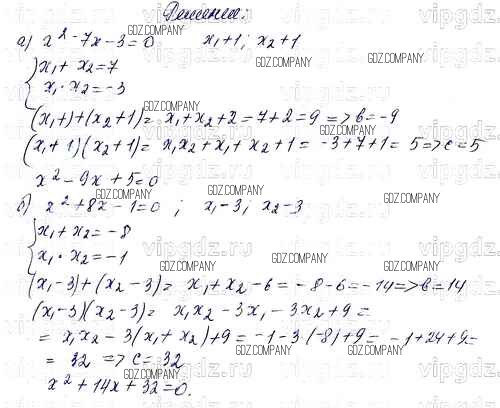 Решение.
а) x² - 7x - 3 = 0   x₁+1; x₂+1
{ x₁ + x₂ = 7
x₁ · x₂ = -3
(x₁+1)+(x₂+1) = x₁+x₂+2 = 7+2 = 9 => b = -9
(x₁+1)(x₂+1) = x₁x₂+x₁+x₂+1 = -3+7+1 = 5 => c = 5
x² - 9x + 5 = 0
б) x² + 8x - 1 = 0 ; x₁-3; x₂-3
{ x₁ + x₂ = -8
x₁ · x₂ = -1
(x₁-3)+(x₂-3) = x₁+x₂-6 = -8-6 = -14 => b = 14
(x₁-3)(x₂-3) = x₁x₂ - 3x₁ - 3x₂ + 9 =
= x₁x₂ - 3(x₁+x₂)+9 = -1-3·(-8)+9 = -1+24+9 =
= 32 => c = 32
x² + 14x + 32 = 0.